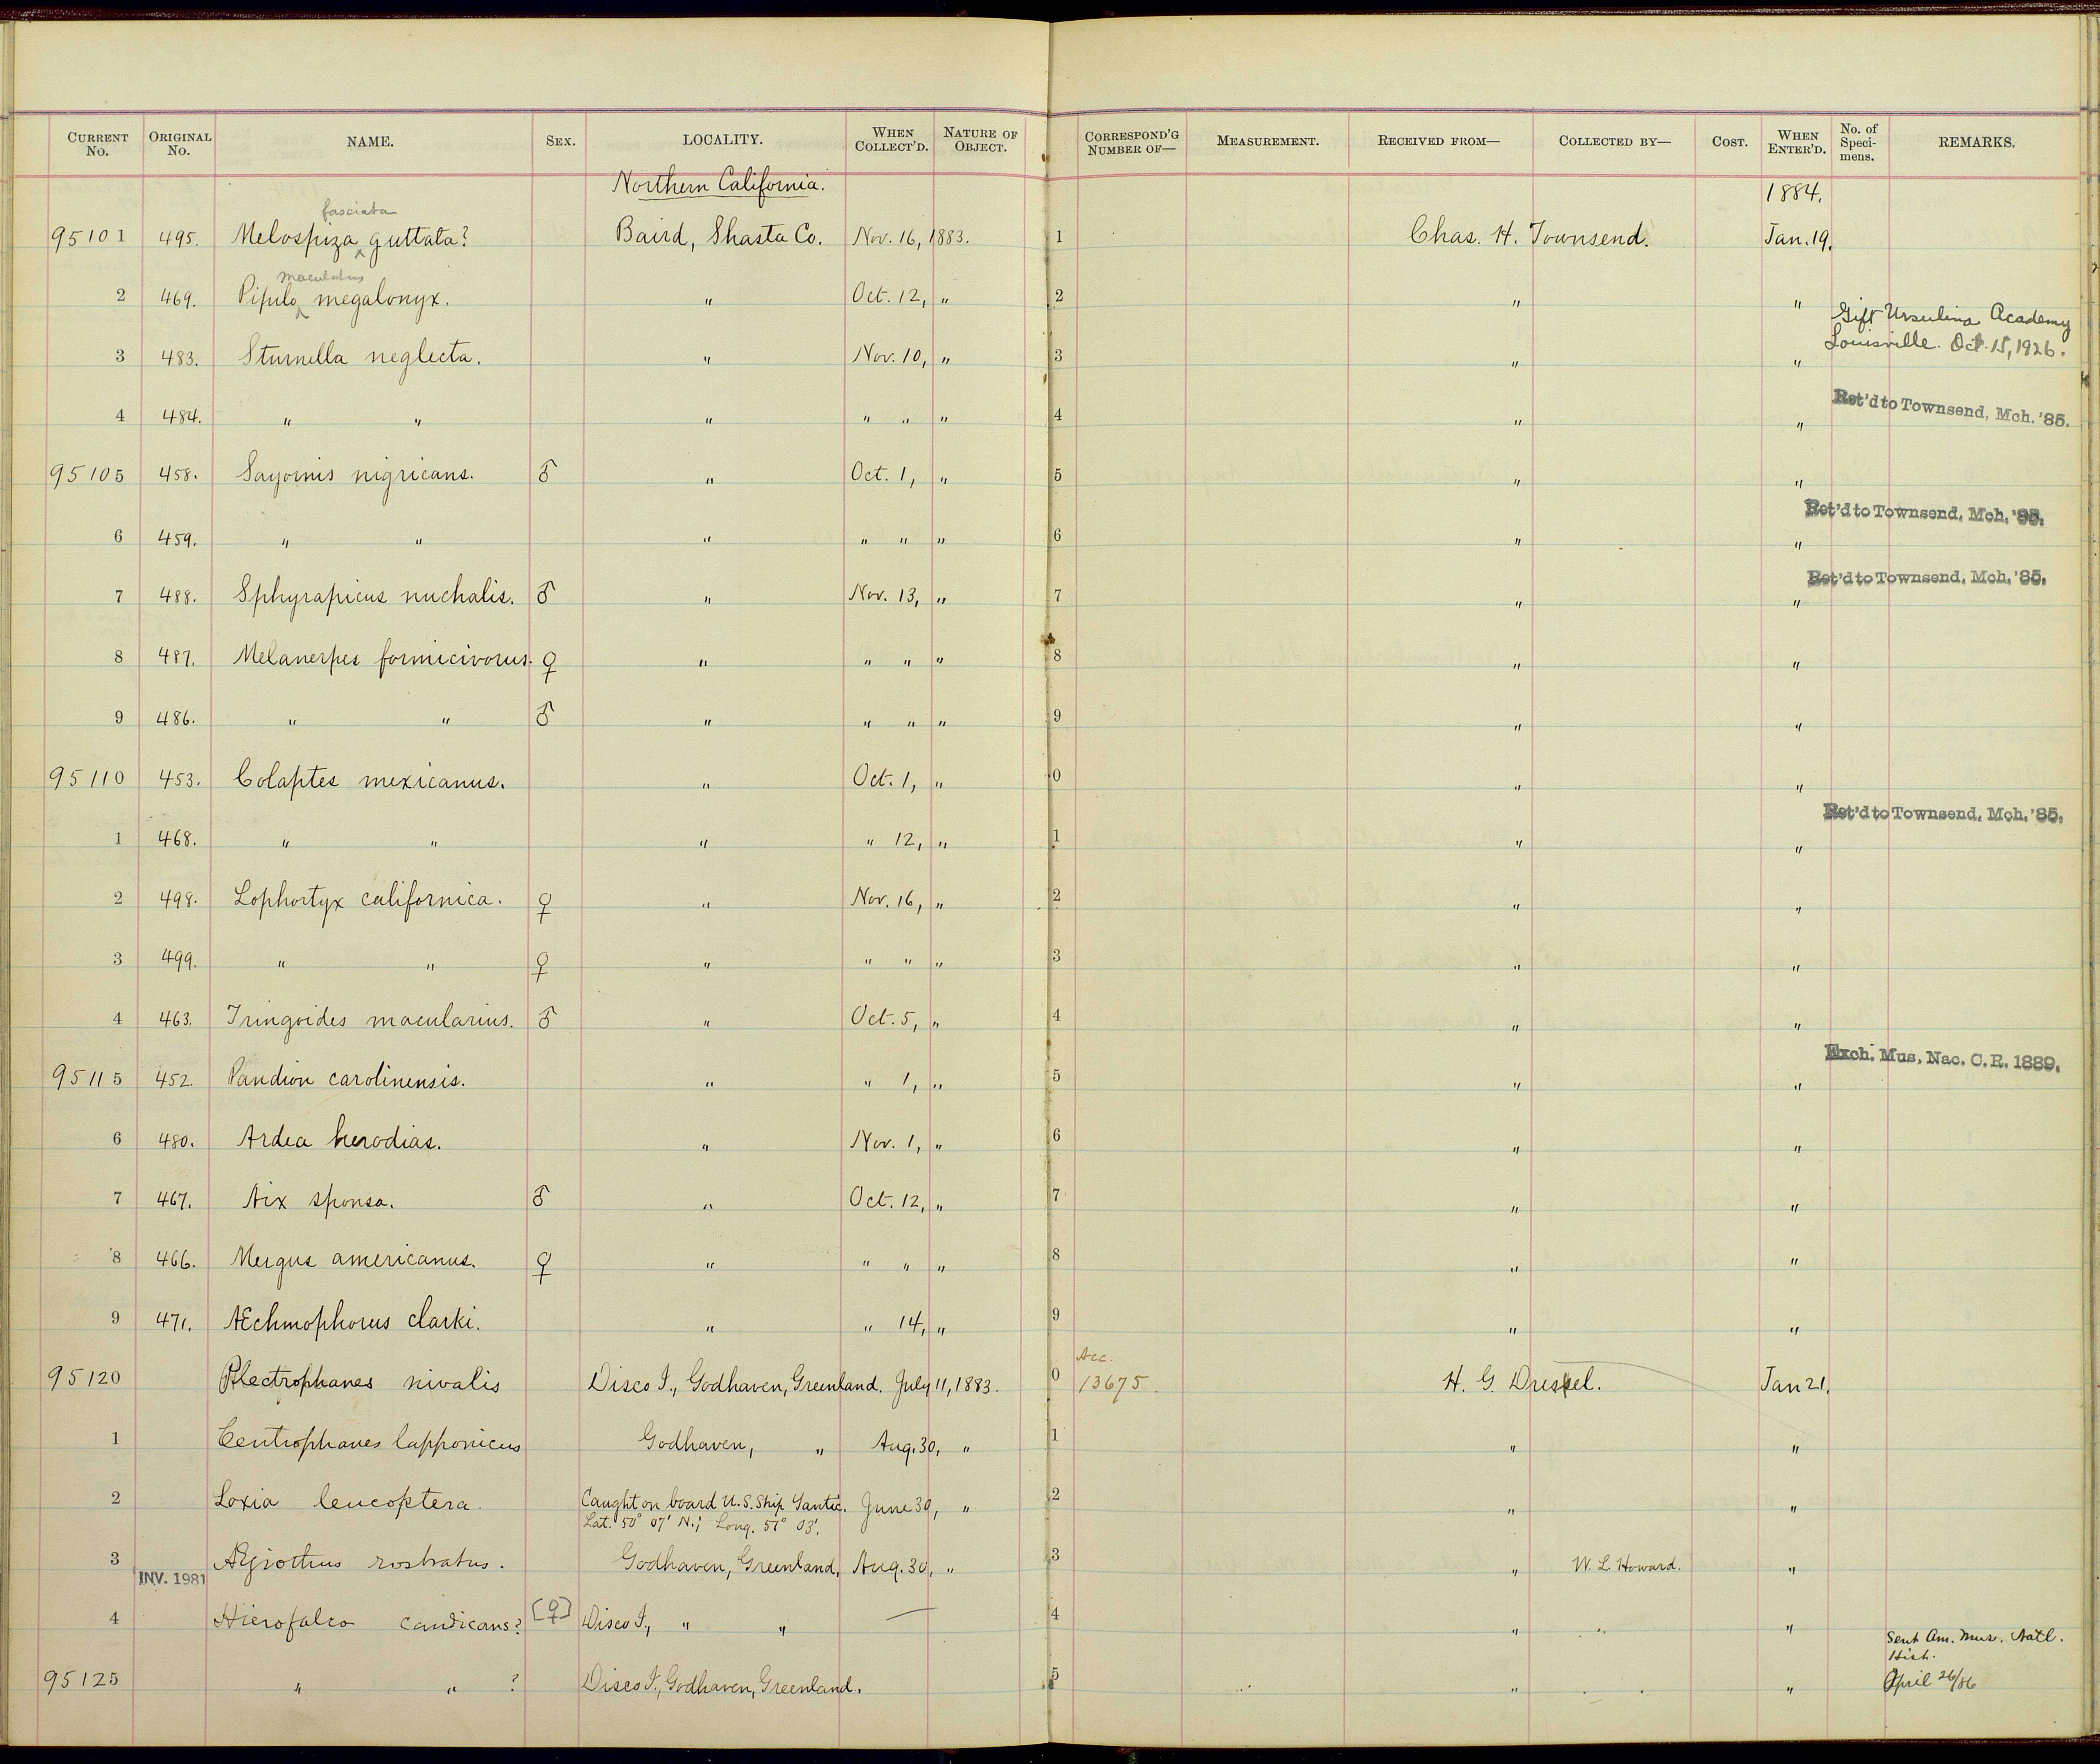 CURRENT No. ORIGINAL No. NAME. SEX. LOCALITY. WHEN COLLECT'D. NATURE OF OBJECT. CORRESPOND'G NUMBER OF— MEASUREMENT. RECEIVED FROM— COLLECTED BY— COST. WHEN ENTER'D. No. of Speci-mens. REMARKS.
Northern California. 1884.
fasciata
95101 495. Melospiza ^ guttata? Baird, Shasta Co. Nov. 16, 1883. 1 Chas. H. Townsend. Jan. 19.
maculatus
2 469. Pipilo ^ megalonyx. " Oct. 12, " 2 " "
Gift Ursulina Academy
Louisville. Oct. 15, 1926.
3 483. Sturnella neglecta. " Nov. 10, " 3 " "
4 484. " " " " " " 4 " " Ret'd to Townsend, Mch. '85.
95105 458. Sayornis nigricans. ♂ " Oct. 1, " 5 " "
6 459. " " " " " " 6 " " Ret'd to Townsend, Mch. '85.
7 488. Sphyrapicus nuchalis. ♂ " Nov. 13, " 7 " " Ret'd to Townsend, Mch. '85.
8 487. Melanerpes formicivorus. ♀ " " " " 8 " "
9 486. " " ♂ " " " " 9 " "
95110 453. Colaptes mexicanus. " Oct. 1, " 0 " "
1 468. " " " " 12, " 1 " " Ret'd to Townsend, Mch. '85.
2 498. Lophortyx californica. ♀ " Nov. 16, " 2 " "
3 499. " " ♀ " " " " 3 " "
4 463. Tringoides macularius. ♂ " Oct. 5, " 4 " "
95115 452. Pandion carolinensis. " " 1, " 5 " " Exch. Mus. Nac. C.R. 1889.
6 480. Ardea herodias. " Nov. 1, " 6 " "
7 467. Aix sponsa. ♂ " Oct. 12, " 7 " "
8 466. Mergus americanus. ♀ " " " " 8 " "
9 471. Æchmophorus clarki. " " 14, " 9 " "
Acc.
95120 Plectrophanes nivalis Disco I., Godhaven, Greenland. July 11, 1883. 0 13675 H. G. Dresel. Jan 21.
1 Centrophanes lapponicus Godhaven, " Aug. 30, " 1 " "
2 Loxia leucoptera. Caught on board U.S. Ship Yantic. June 30, " 2 " "
Lat. 50° 07' N.; Long. 57° 03'.
3 Ægiothus rostratus. Godhaven, Greenland, Aug. 30, " 3 " W. L. Howard. "
INV. 1981
4 Hierofalco candicans? [♀] Disco I., " " — 4 " " "
Sent Am. Mus. Natl.
Hist.
95125 " " ? Disco I., Godhaven, Greenland. 5 " " April 26/86